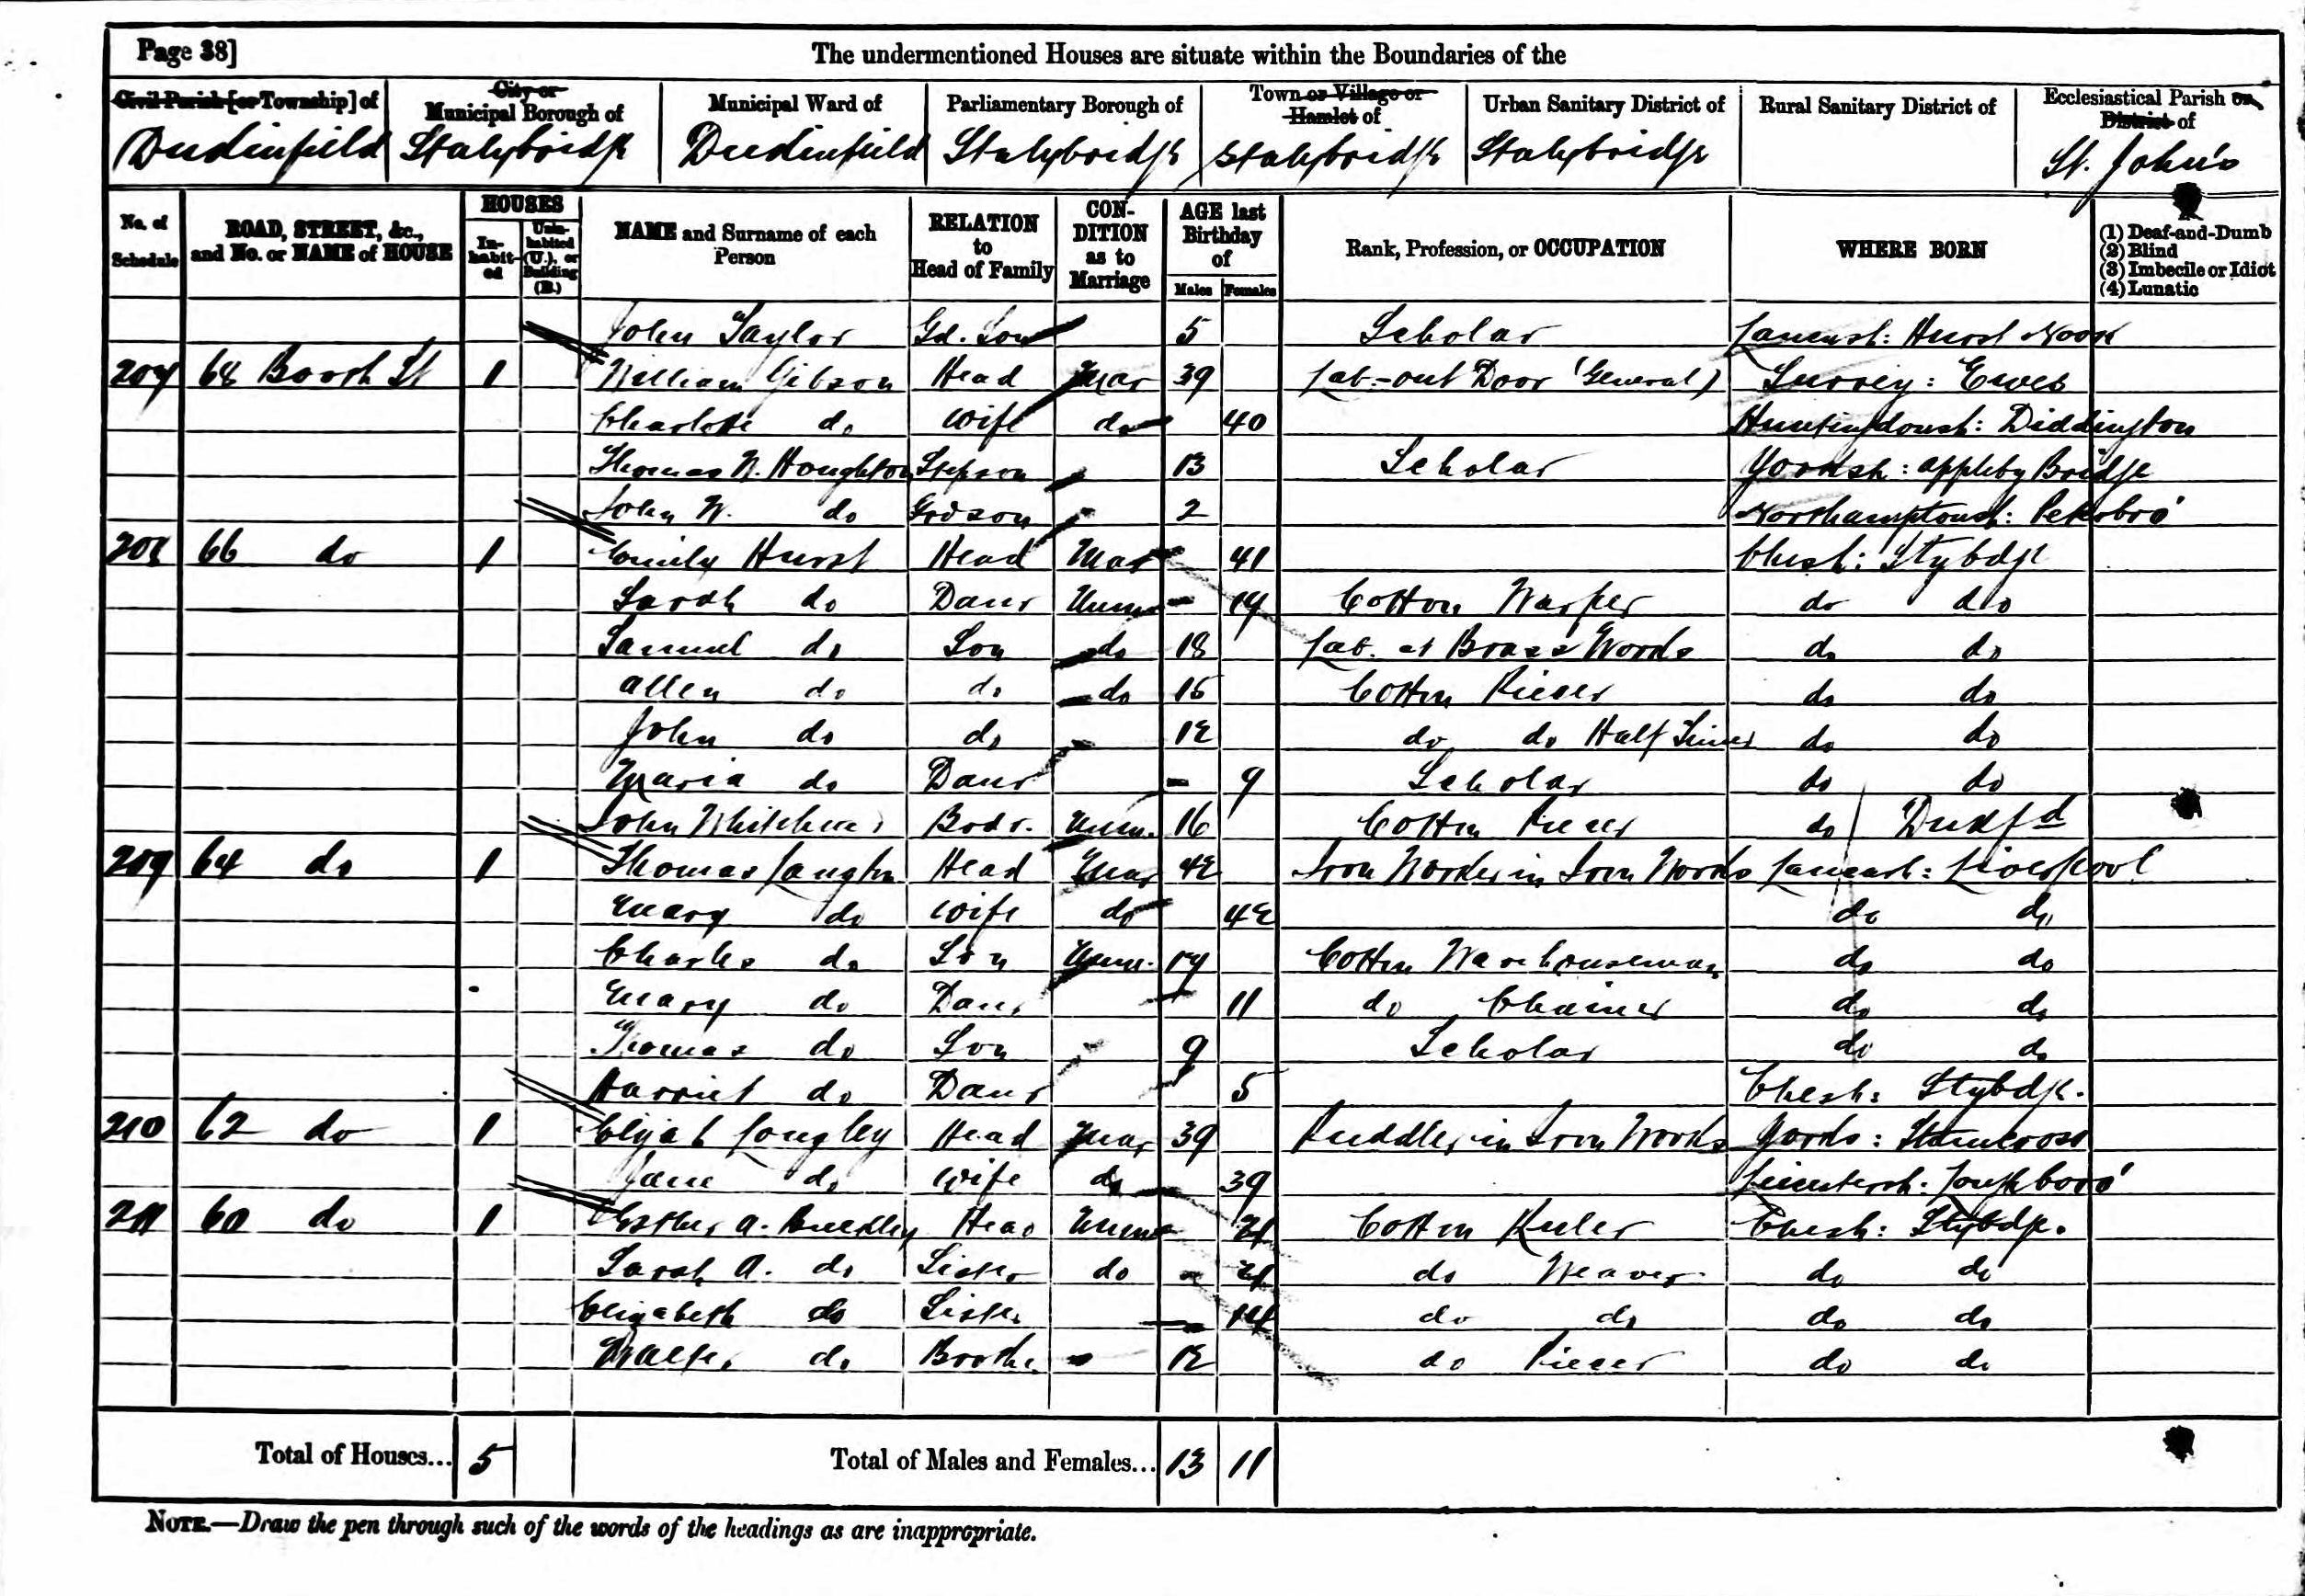 Page 38]
The undermentioned Houses are situate within the Boundaries of the
Civil Parish [or Township] of
City or Municipal Borough of
Municipal Ward of
Parliamentary Borough of
Town or Village or Hamlet of
Urban Sanitary District of
Rural Sanitary District of
Ecclesiastical Parish or District of
Dukinfield Stalybridge Dukinfield Stalybridge Stalybridge Stalybridge St. John's
No. of Schedule
ROAD, STREET, &c., and No. or NAME of HOUSE
HOUSES
In-habit-ed
Unin-habited (U.), or Building (B.)
NAME and Surname of each Person
RELATION to Head of Family
CON-DITION as to Marriage
AGE last Birthday of
Males Females
Rank, Profession, or OCCUPATION
WHERE BORN
(1) Deaf-and-Dumb
(2) Blind
(3) Imbecile or Idiot
(4) Lunatic
John Taylor Gd. Son 5 Scholar Lancash: Hurst Nook
207 68 Booth St 1 William Gibson Head Mar 39 Lab-out Door (General) Surrey:
Charlotte do Wife do 40 Huntingdonsh: Diddington
Thomas W. Houghton Stepson 13 Scholar Yorksh: appleby Bridge
John W. do Grdson 2 Northamptonsh: Peterbro'
208 66 do 1 Emily Hurst Head Mar 41 Chesh: Stybdge
Sarah do Daur Unm 19 Cotton Warper do do
Samuel do Son do 18 Lab. at Brass Works do do
Allen do do do 15 Cotton Piecer do do
John do do 12 do do Half Timer do do
Maria do Daur 9 Scholar do do
John Bodr. Unm. 16 Cotton Piecer do Dukfd
209 64 do 1 Thomas Head Mar 42 Iron Worker in Iron Works Lancash: Liverpool
Mary do Wife do 42 do do
Charles do Son Unm. 19 Cotton Warehouseman do do
Mary do Daur 11 do do do
Thomas do Son 9 Scholar do do
Harriet do Daur 5 Chesh: Stybdge.
210 62 do 1 Elijah Longley Head Mar 39 Puddler in Iron Works Yorks: Staincross
Jane do Wife do 39 Leicestersh: Loughboro'
211 60 do 1 Esther A. Buckley Head Unm Cotton Reeler Chesh: Stybdge.
Sarah A. do Sister do do Weaver do do
Elizabeth do Sister do do do do
Walter do Brother 12 do Piecer do do
Total of Houses... 5 Total of Males and Females... 13 11
NOTE.—Draw the pen through such of the words of the headings as are inappropriate.